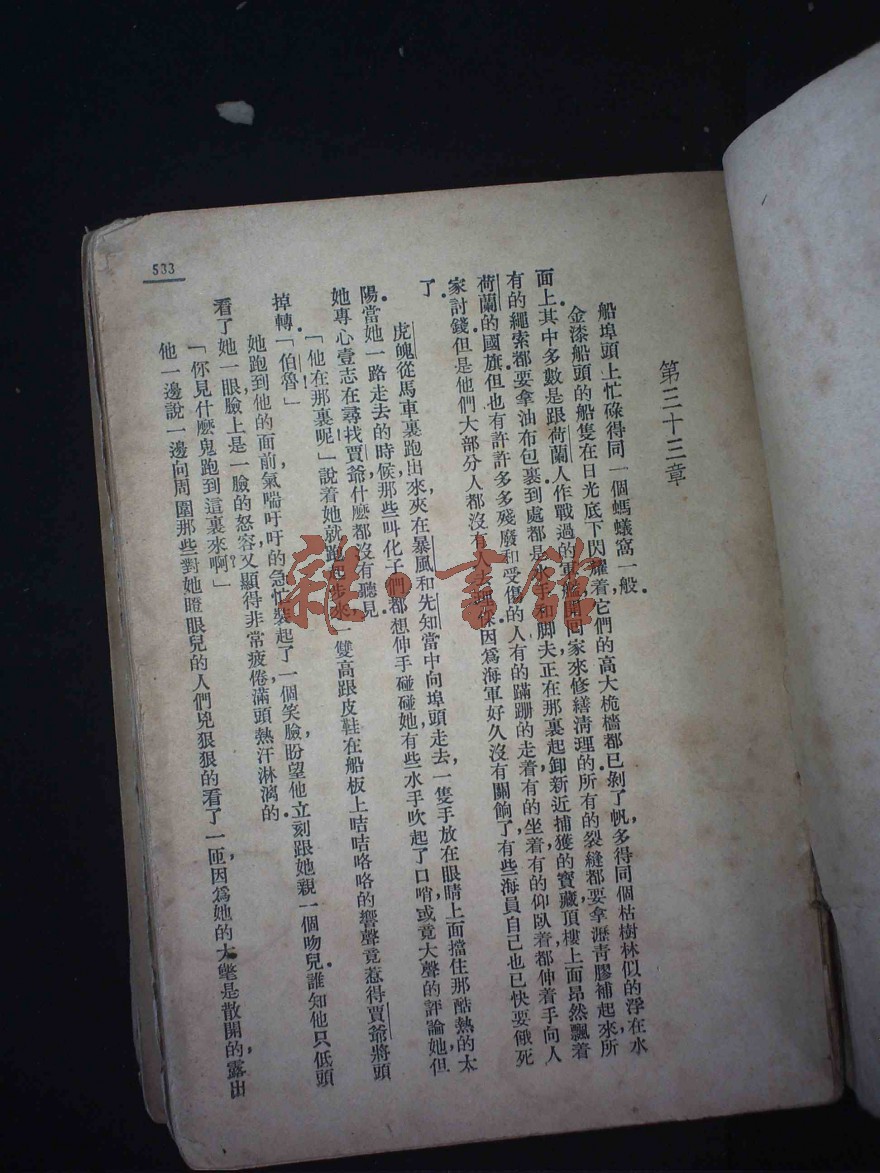 第三十三章
船埠頭上忙碌得同一個螞蟻窩一般。
金漆船頭的船隻在日光底下閃耀着它們的高大桅檣都已剝了帆,多得同個枯樹林似的浮在水
面上。其中多數是跟荷蘭人作戰過的軍艦,開回家來修繕清理的。所有的裂縫都要拿瀝青膠補起來,所
有的繩索都要拿油布包裹。到處都是水手和脚夫正在那裏起卸新近捕獲的寶藏。頂樓上面昂然飄着
荷蘭的國旗。但也有許許多多殘廢和受傷的人,有的蹣跚的走着,有的坐着,有的仰臥着,都伸着手向人
家討錢。但是他們大部分人都沒有人去理保,因爲海軍好久沒有關餉了,有些海員自己也已快要餓死
了。
虎魄從馬車裏跑出來,夾在暴風和先知當中向埠頭走去,一隻手放在眼睛上面擋住那酷熱的太
陽。當她一路走去的時候,那些叫化子們都想伸手碰碰她,有些水手吹起了口哨,或竟大聲的評論她。但
她專心壹志在尋找賈爺,什麽都沒有聽見。
「他在那裏呢!」說着她就跑起步來,一雙高跟皮鞋在船板上咭咭咯咯的響聲竟惹得賈爺將頭
掉轉。「伯魯!」
她跑到他的面前,氣喘吁吁的,急忙裝起了一個笑臉,盼望他立刻跟她親一個吻兒。誰知他只低頭
看了她一眼,臉上是一臉的怒容,又顯得非常疲倦,滿頭熱汗淋漓的。
「你見什麽鬼跑到這裏來啊?」
他一邊說一邊向周圍那些對她瞪眼兒的人們兇狠狠的看了一匝,因爲她的大氅是散開的,露出
533
雜·書館